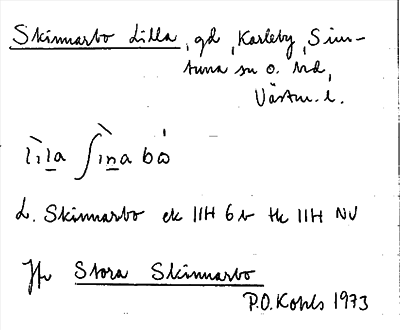 Skinnarbo Lilla, gd, Karleby, Sim-
tuna sn o. hd,
Västm. l.
lìla ʃìnabω̇
L. Skinnarbo ek 11H 6b tk 11H NV
Jfr Stora Skinnarbo
P.O. Kohls 1973